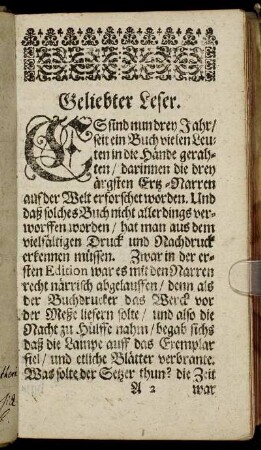 Geliebter Leser.
ES sind nun drey Jahr/
seit ein Buch vielen Leu-
ten in die Hände gerah-
ten/ darinnen die drey
ärgsten Ertz-Narren
auf der Welt erforschet worden. Und
daß solches Buch nicht allerdings ver-
worffen worden/ hat man aus dem
vielfältigen Druck und Nachdruck
erkennen müssen. Zwar in der er-
sten Edition war es mit den Narren
recht närrisch abgelauffen/ denn als
der Buchdrucker das Werck vor
der Meße liefern solte/ und also die
Nacht zu Hülffe nahm/ begab sichs
daß die Lampe auff das Exemplar
fiel/ und etliche Blätter verbrante.
Was solte der Setzer thun? die Zeit
A 2 war